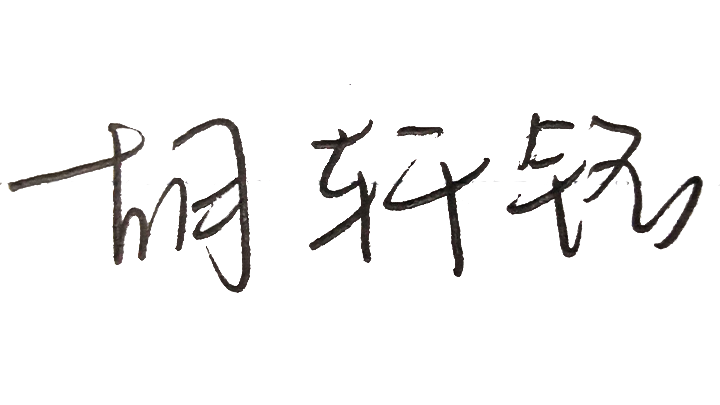 胡轩铭